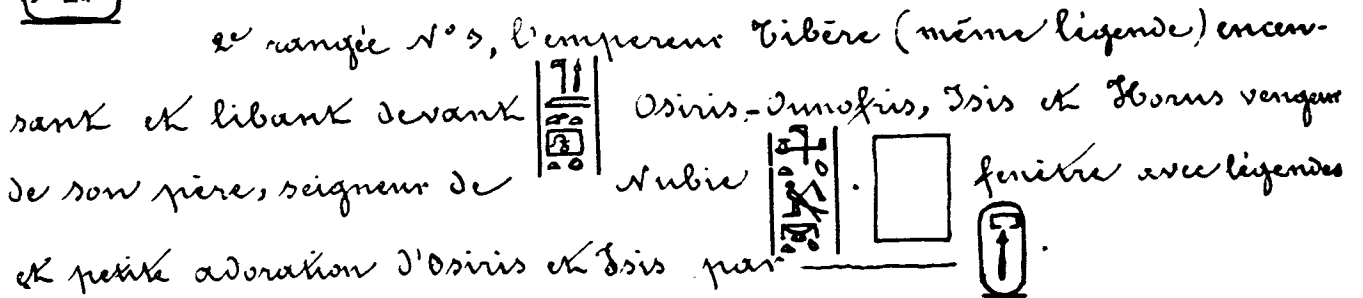 2e rangée N° 3, l'empereur Tibère (même légende) encen-
sant et libant devant Osiris-Ounofris, Isis et Horus vengeur
de son père, seigneur de Nubie . fenêtre avec légendes
et petite adoration d'Osiris et Isis par .